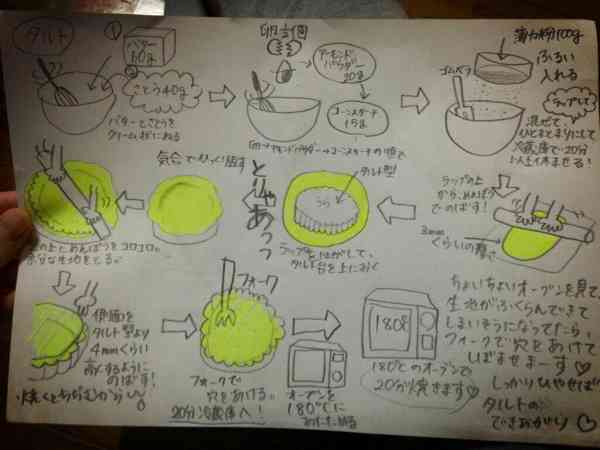 タルト
①
バター
60g
②
さとう40g
バターとさとうを
クリーム状にねる
卵1個
アーモンド
パウダー
20g
コーンスターチ
15g
卵→アーモンドパウダー→コーンスターチの順で
薄力粉100g
ふるい
入れる
ゴムベラ
ラップして
混ぜて
ひとまとまりにして
冷蔵庫で20分
以上休ませる!
ラップの上
から、めんぼう
でのばす!
3mm
くらいの厚さ
タルト型
うら
ラップをはがして、
タルト台を上におく
とりゃあっっ
気合でひっくり返す
型の上をめんぼうをコロコロ。
余分な生地をとる。
伊面を
タルト型より
4mmくらい
高くするように
のばす!
焼くとちぢむから
フォーク
フォークで
穴をあける。
20分冷蔵庫へ!
オーブンを
180℃に
あたためる
180℃
180℃のオーブンで
20分焼きます♡
ちょいちょいオーブンを見て、
生地がふくらんできて
しまいそうになってたら、
フォークで穴をあけて
しぼませまーす♡
しっかりひやせば
タルトの
できあがり♡